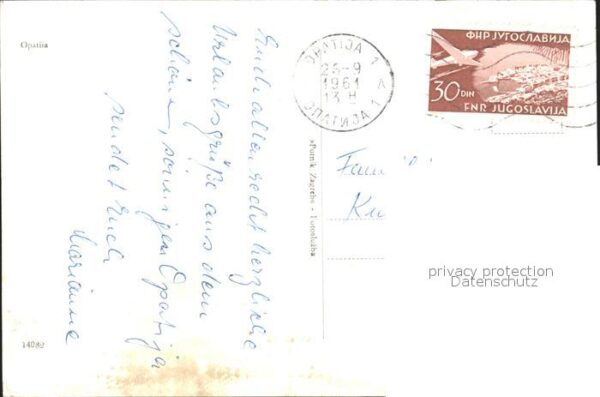 Opatija
Euch allen recht herzliche
Urlaubsgrüße aus dem
schönen, sonnigen Opatija
sendet Euch
Marianne
14082
»Putnik Zagreb« - Fotoslužba
OPATIJA 1
23-9
1961
13 H
A
ОПАТИЈА 1
ФНР ЈУГОСЛАВИЈА
30 DIN
FNR JUGOSLAVIJA
privacy protection
Datenschutz